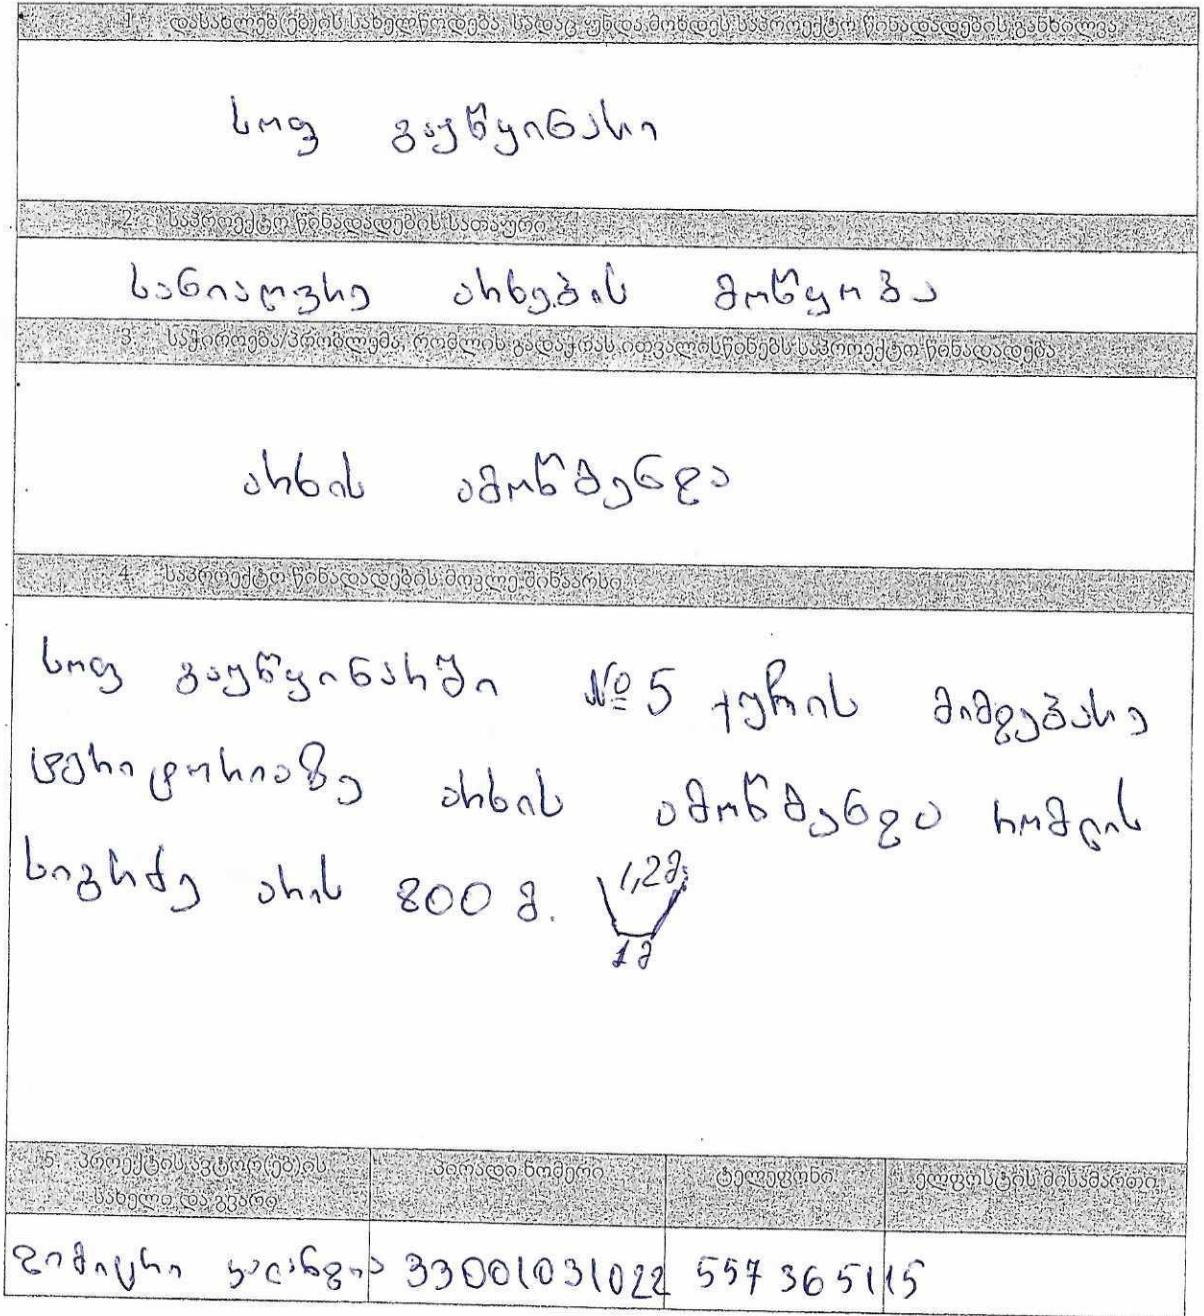 1. დასახლებ(ებ)ის სახელწოდება, სადაც უნდა მოხდეს საპროექტო წინადადების განხილვა
სოფ გაუწყინარი
2. საპროექტო წინადადების სათაური
სანიაღვრე არხების მოწყობა
3. საჭიროება/პრობლემა, რომლის გადაჭრას ითვალისწინებს საპროექტო წინადადება
არხის ამოწმენდა
4. საპროექტო წინადადების მოკლე შინაარსი
სოფ გაუწყინარში №5 ქუჩის მიმდებარე
ტერიტორიაზე არხის ამოწმენდა რომლის
სიგრძე არის 800 მ. 1,2მ.
1მ
5. პროექტის ავტორ(ებ)ის პირადი ნომერი ტელეფონი ელფოსტის მისამართი
სახელი და გვარი
დიმიტრი 33001031022 557365115